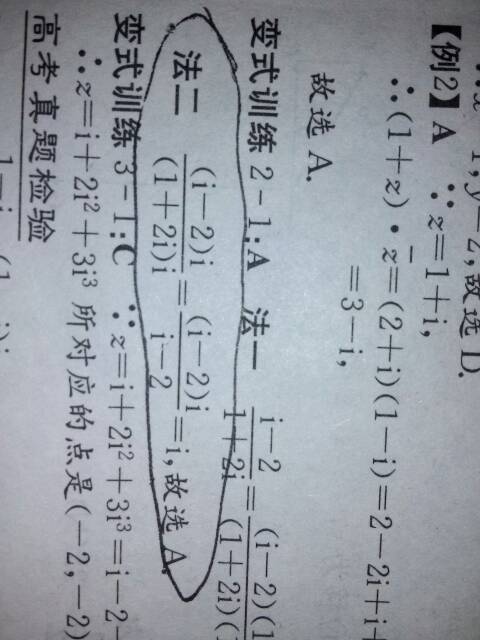 1, y=2, 故选 D.
【例2】 A ∵z=1+i,
∴(1+z)·z̄=(2+i)(1-i)=2-2i+i+
=3-i,
故选 A.
变式训练 2-1:A 法一 (i-2)/(1+2i)=(i-2)(1/(1+2i)(1
法二 (i-2)i/(1+2i)i=(i-2)i/(i-2)=i,故选 A.
变式训练 3-1:C ∵z=i+2i²+3i³=i-2-
∴z=i+2i²+3i³ 所对应的点是(-2,-2)
高考真题检验